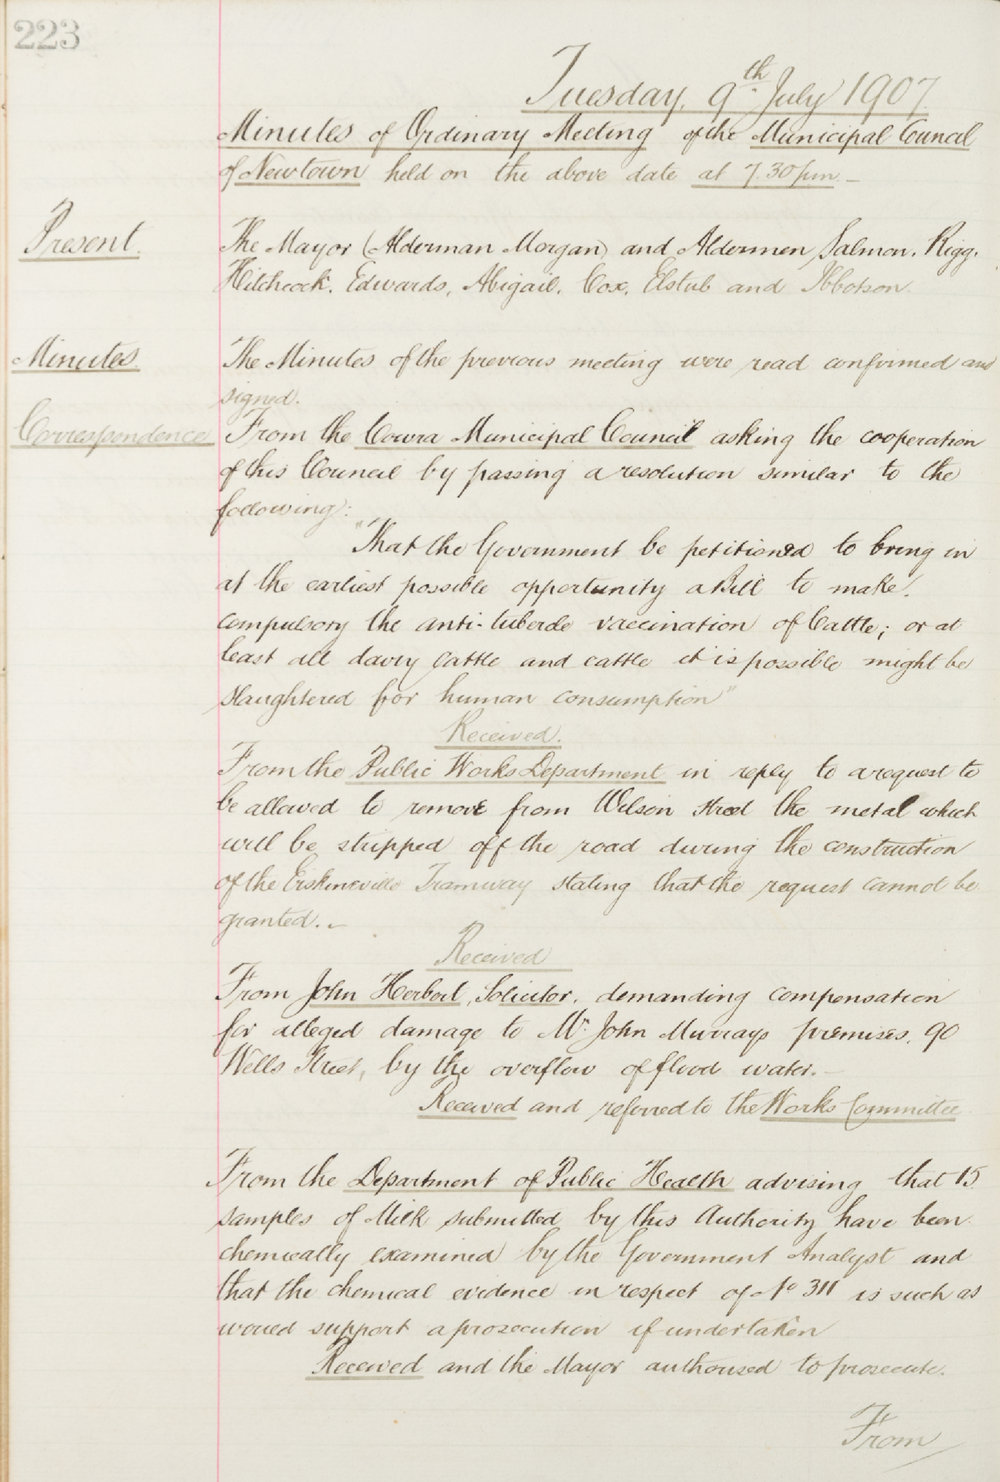 223
Tuesday, 9th July 1907.
Minutes of Ordinary Meeting of the Municipal Council
of Newtown held on the above date at 7.30 pm –
Present.
The Mayor (Alderman Morgan) and Aldermen Salmon. Rigg.
Hitchcock. Edwards, Abigail. Cox, Elstub and Ibbotson.
Minutes.
The Minutes of the previous meeting were read confirmed and
signed.
Correspondence
From the Cowra Municipal Council asking the cooperation
of this Council by passing a resolution similar to the
following:
"That the Government be petitioned to bring in
at the earliest possible opportunity a Bill to make
compulsory the anti-tubercle vaccination of Cattle; or at
least all dairy cattle and cattle it is possible might be
slaughtered for human consumption"
Received.
From the Public Works Department in reply to a request to
be allowed to remove from Wilson Street the metal which
will be stripped off the road during the construction
of the Erskineville Tramway stating that the request cannot be
granted. –
Received
From John Herbert, Solicitor, demanding compensation
for alleged damage to Mr. John Murrays premises, 90
Wells Street, by the overflow of flood water. –
Received and referred to the Works Committee
From the Department of Public Health advising that 15
samples of Milk submitted by this Authority have been
chemically examined by the Government Analyst and
that the chemical evidence in respect of No 311 is such as
would support a prosecution if undertaken
Received and the Mayor authorised to prosecute.
From